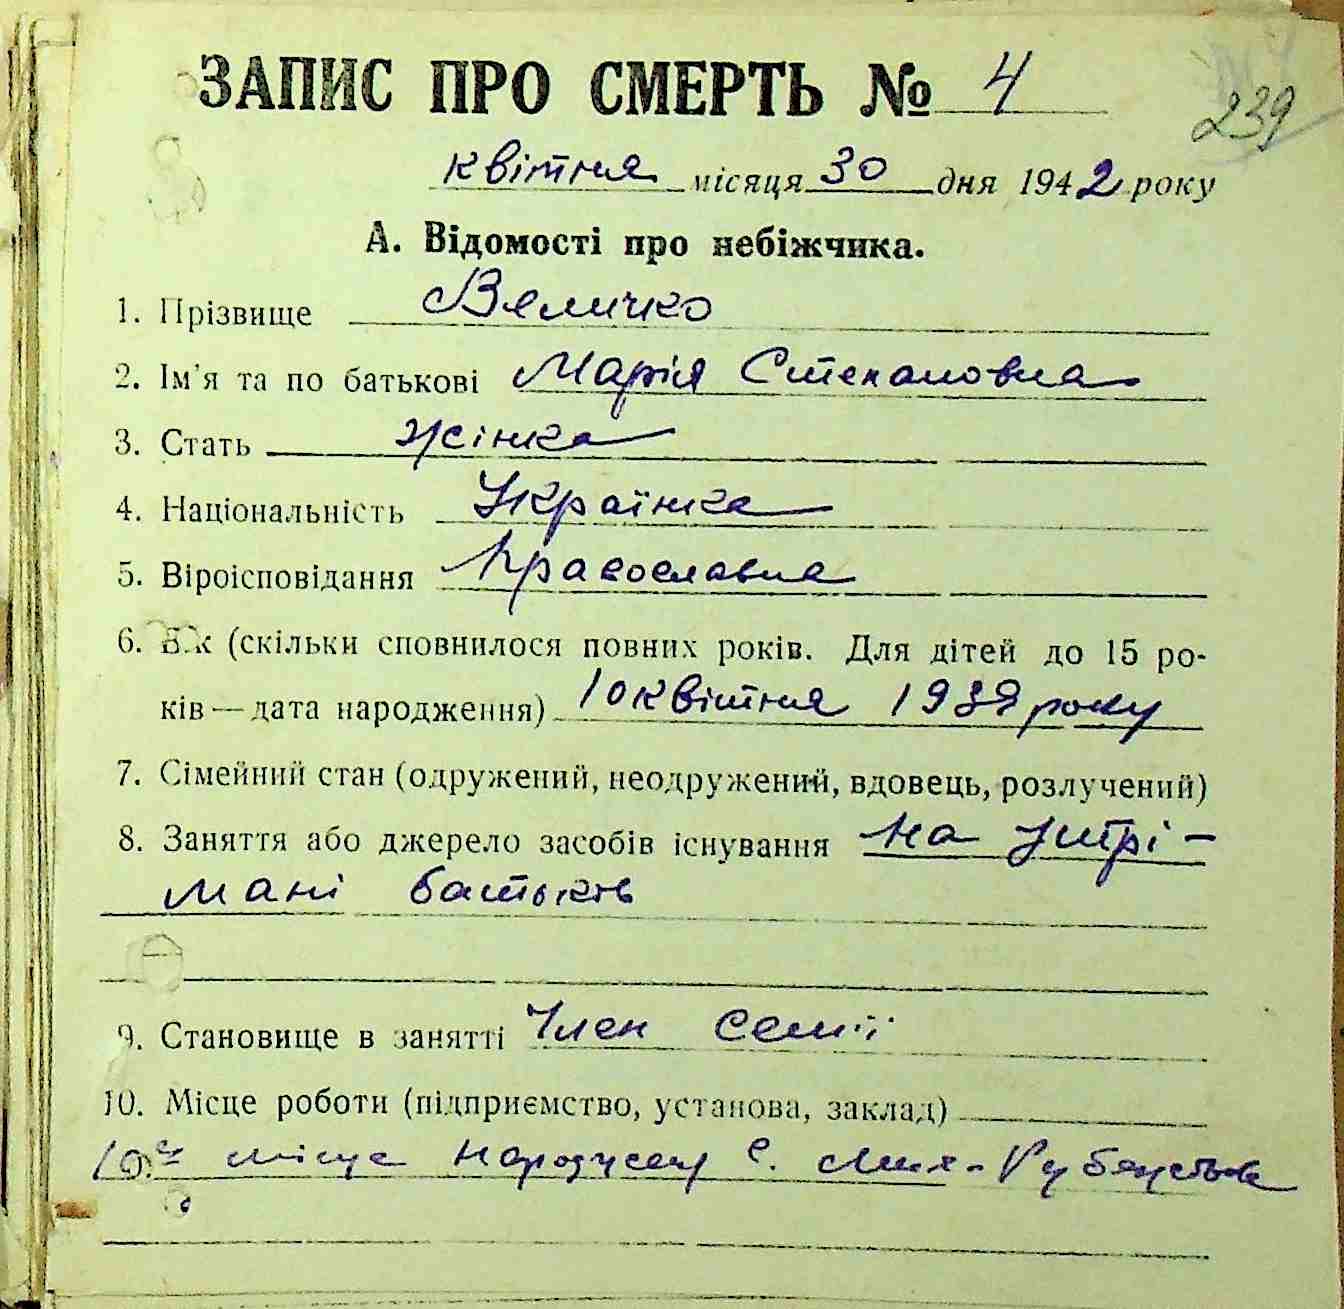 ЗАПИС ПРО СМЕРТЬ № 4
239
квітня місяця 30 дня 1942 року
А. Відомості про небіжчика.
1. Прізвище Величко
2. Ім'я та по батькові Марія Степановна
3. Стать жінка
4. Національність Українка
5. Віроісповідання Православна
6. Вік (скільки сповнилося повних років. Для дітей до 15 ро-
ків — дата народження) 10 квітня 1939 року
7. Сімейний стан (одружений, неодружений, вдовець, розлучений)
8. Заняття або джерело засобів існування на утрі-
мані батьків
9. Становище в занятті Член семії
10. Місце роботи (підприємство, установа, заклад)
місце с. Мих-